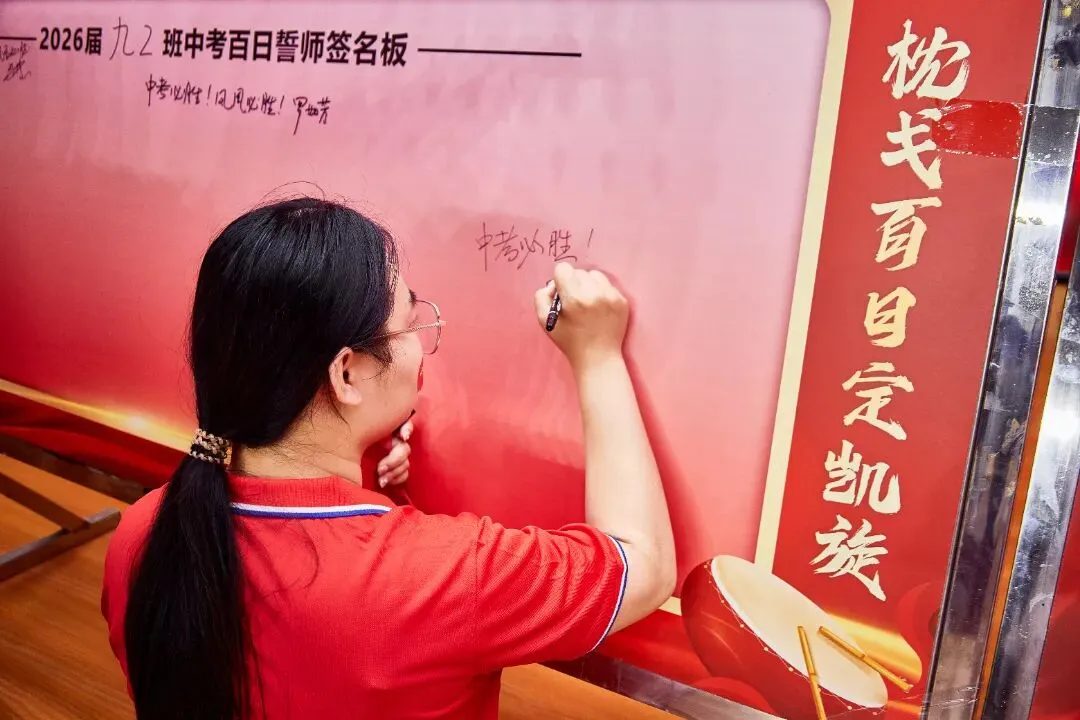 2026届九2班中考百日誓师签名板
中考必胜！凤凰必胜！罗如芳
中考必胜！
枕戈百日定凯旋